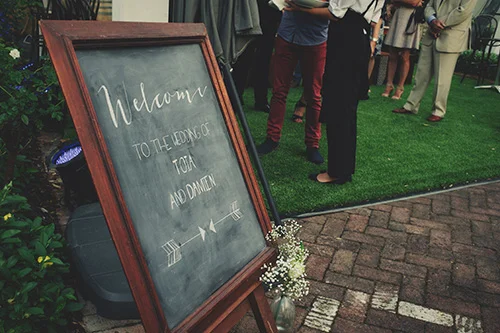 Welcome
TO THE WEDDING OF
TOTA
AND DAMIEN